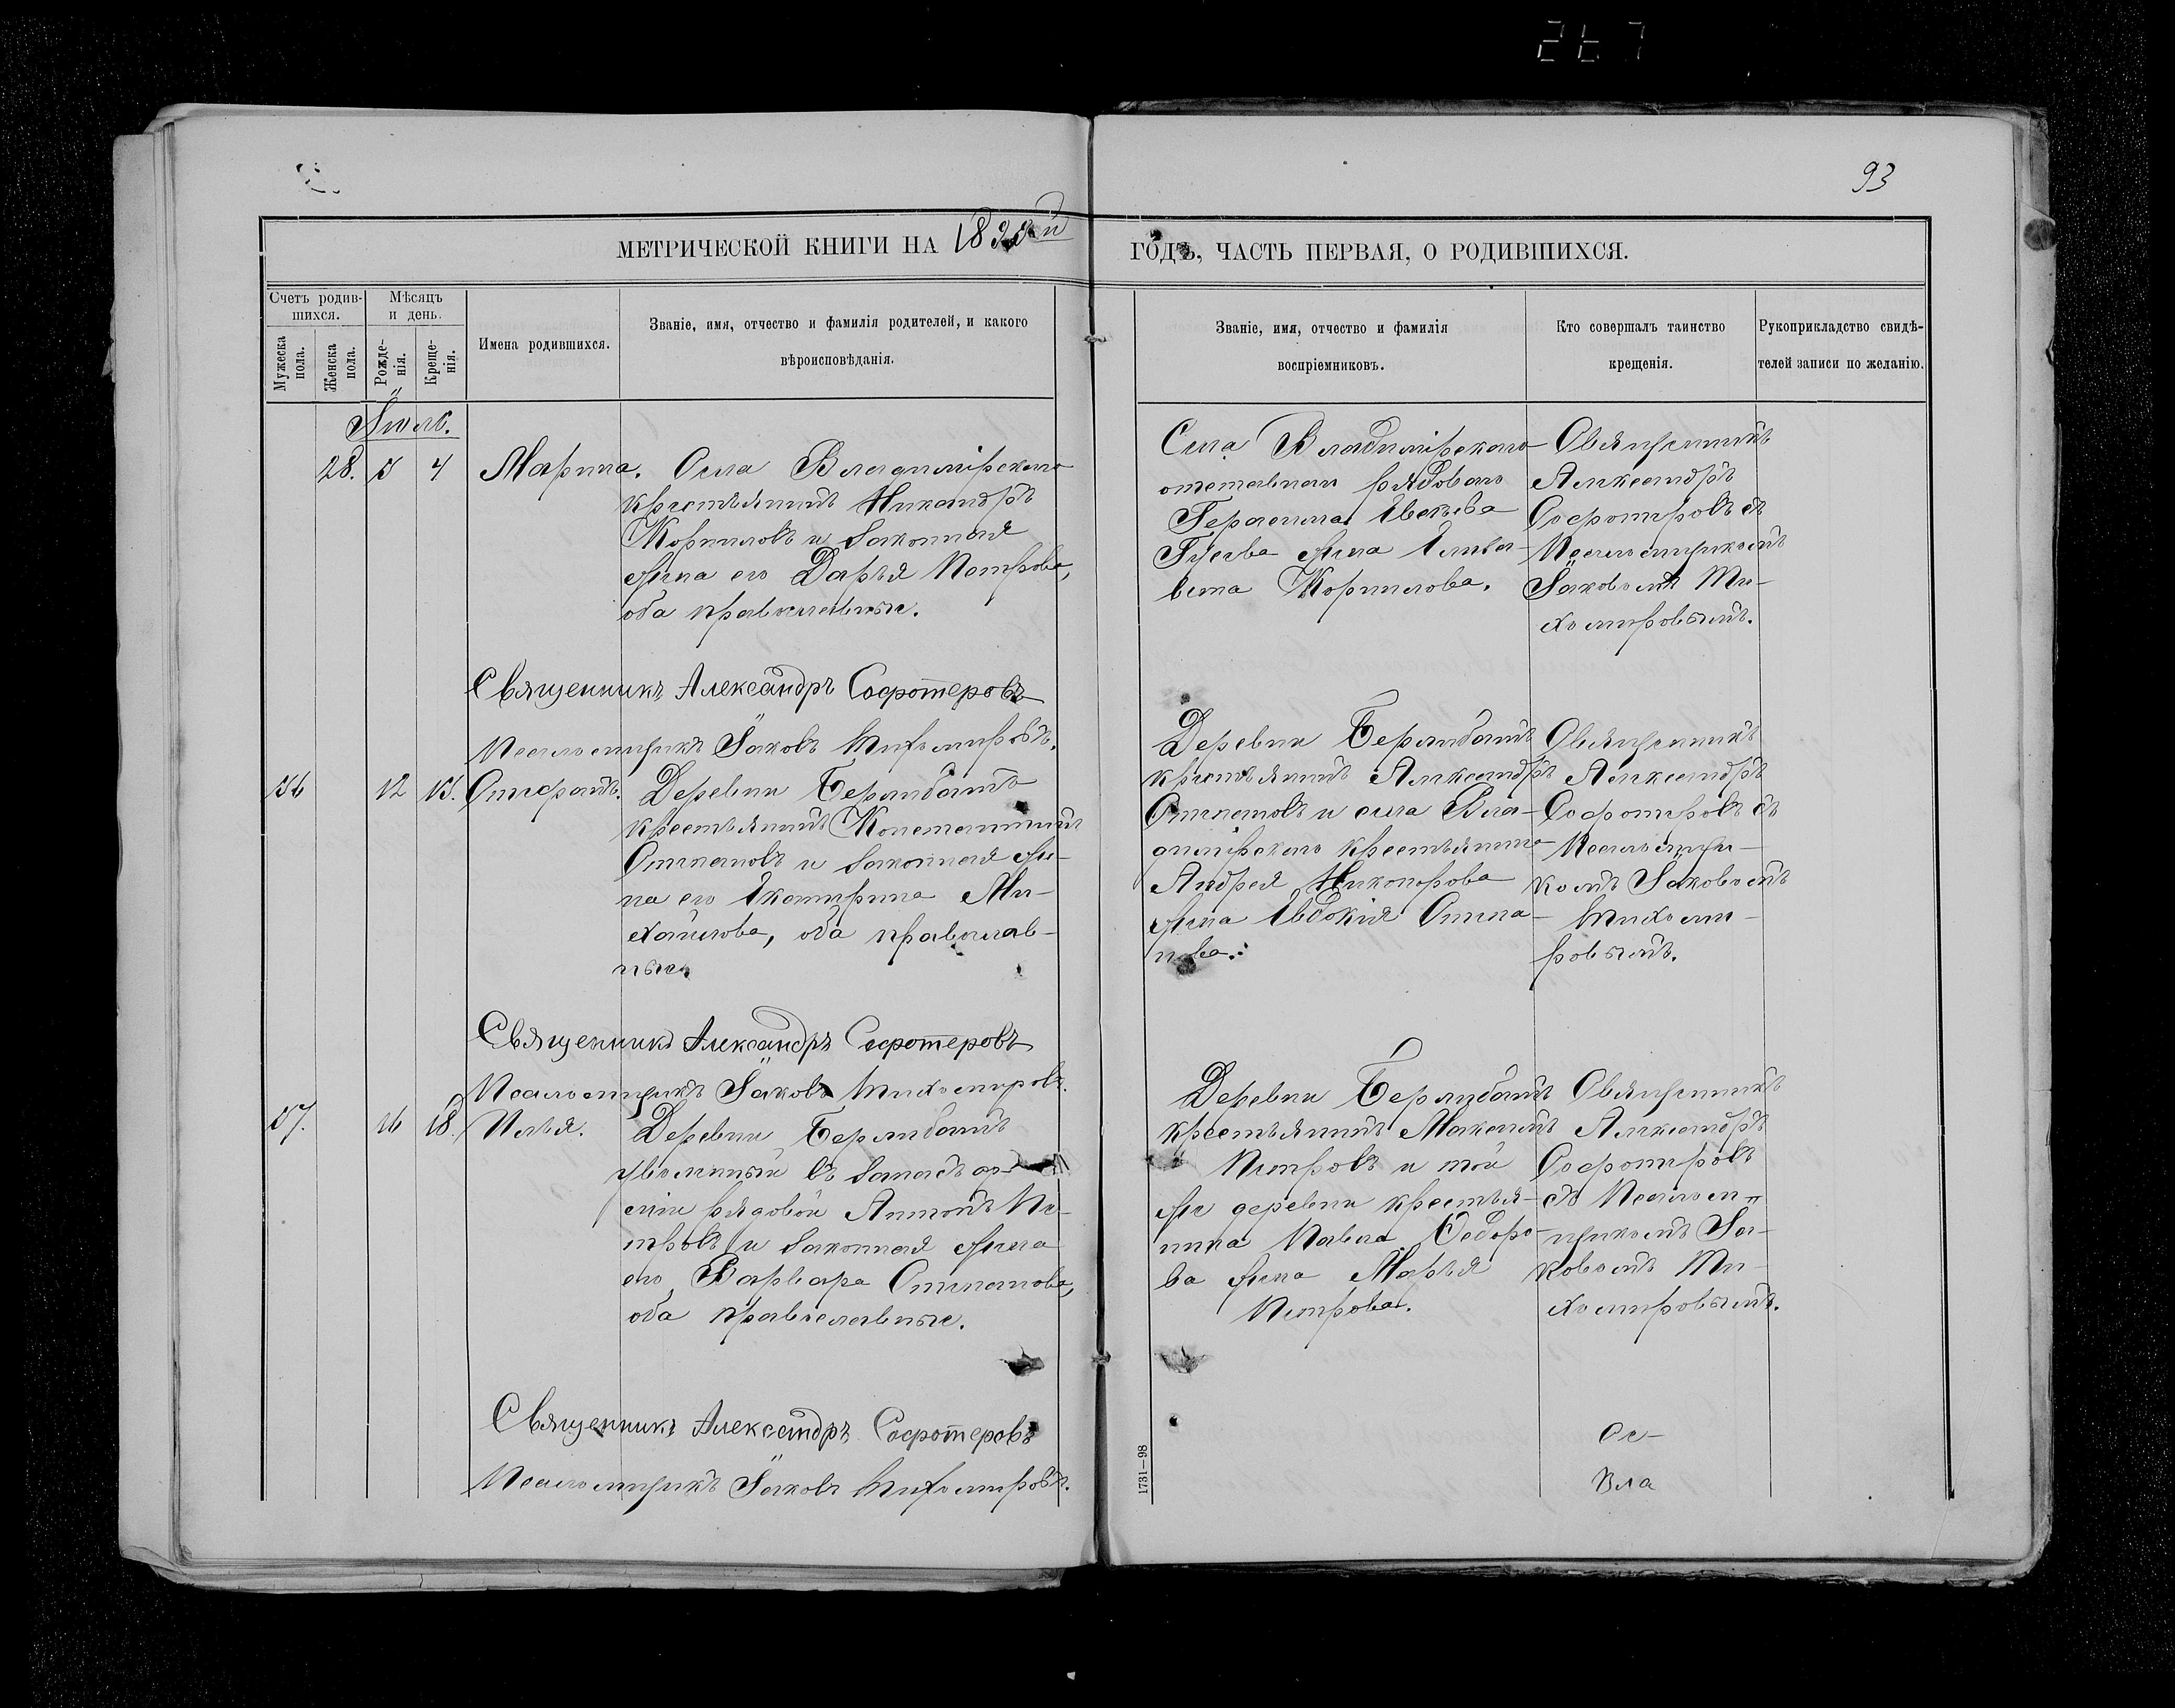 93
МЕТРИЧЕСКОЙ КНИГИ НА 1899й ГОДЪ, ЧАСТЬ ПЕРВАЯ, О РОДИВШИХСЯ.
Счетъ родив-
шихся.
Мужеска
пола.
Женска
пола.
Мѣсяцъ
и день.
Рожде-
нія.
Креще-
нія.
Имена родившихся.
Званіе, имя, отчество и фамилія родителей, и какого
вѣроисповѣданія.
Званіе, имя, отчество и фамилія
воспріемниковъ.
Кто совершалъ таинство
крещенія.
Рукоприкладство свидѣ-
телей записи по желанію.
Іюль.
28. 3 4 Марина. Села Владимірскаго
крестьянинъ Никандръ
Корниловъ и законная
жена его Дарья Петрова,
оба православные.
Села Владимірскаго
отставнаго рядоваго
Герасима
Гусева жена Елиза-
вета Корнилова.
Священникъ
Александръ
Софотеровъ съ
Псаломщикомъ
Іаковомъ Ти-
хомировымъ.
Священникъ Александръ Софотеровъ
Псаломщикъ Іаковъ Тихомировъ.
36 12 13. Стефанъ. Деревни Берлибашъ
крестьянинъ Константинъ
Степановъ и законная же-
на его Екатерина Ми-
хайлова, оба православ-
ные.
Деревни Берлибашъ
крестьянинъ Александръ
Степановъ и села Вла-
димірскаго крестьянина
Андрея Никонорова
жена Евдокія Степа-
нова.
Священникъ
Александръ
Софотеровъ съ
Псаломщи-
комъ Іаковомъ
Тихоми-
ровымъ.
Священникъ Александръ Софотеровъ
Псаломщикъ Іаковъ Тихомировъ.
37. 16 18. Илья. Деревни Берлибашъ
уволенный въ запасъ ар-
міи рядовой Антонъ Пе-
тровъ и законная жена
его Варвара Степанова,
оба православные.
Деревни Берлибашъ
крестьянинъ Максимъ
Петровъ и той
же деревни крестья-
нина Павла Ѳедоро-
ва жена Марья
Петрова.
Священникъ
Александръ
Софотеровъ
съ Псаломъ-
щикомъ Іа-
ковомъ Ти-
хомировымъ.
Священникъ Александръ Софотеровъ
Псаломщикъ Іаковъ Тихомировъ.
Се-
Вла
1731—98